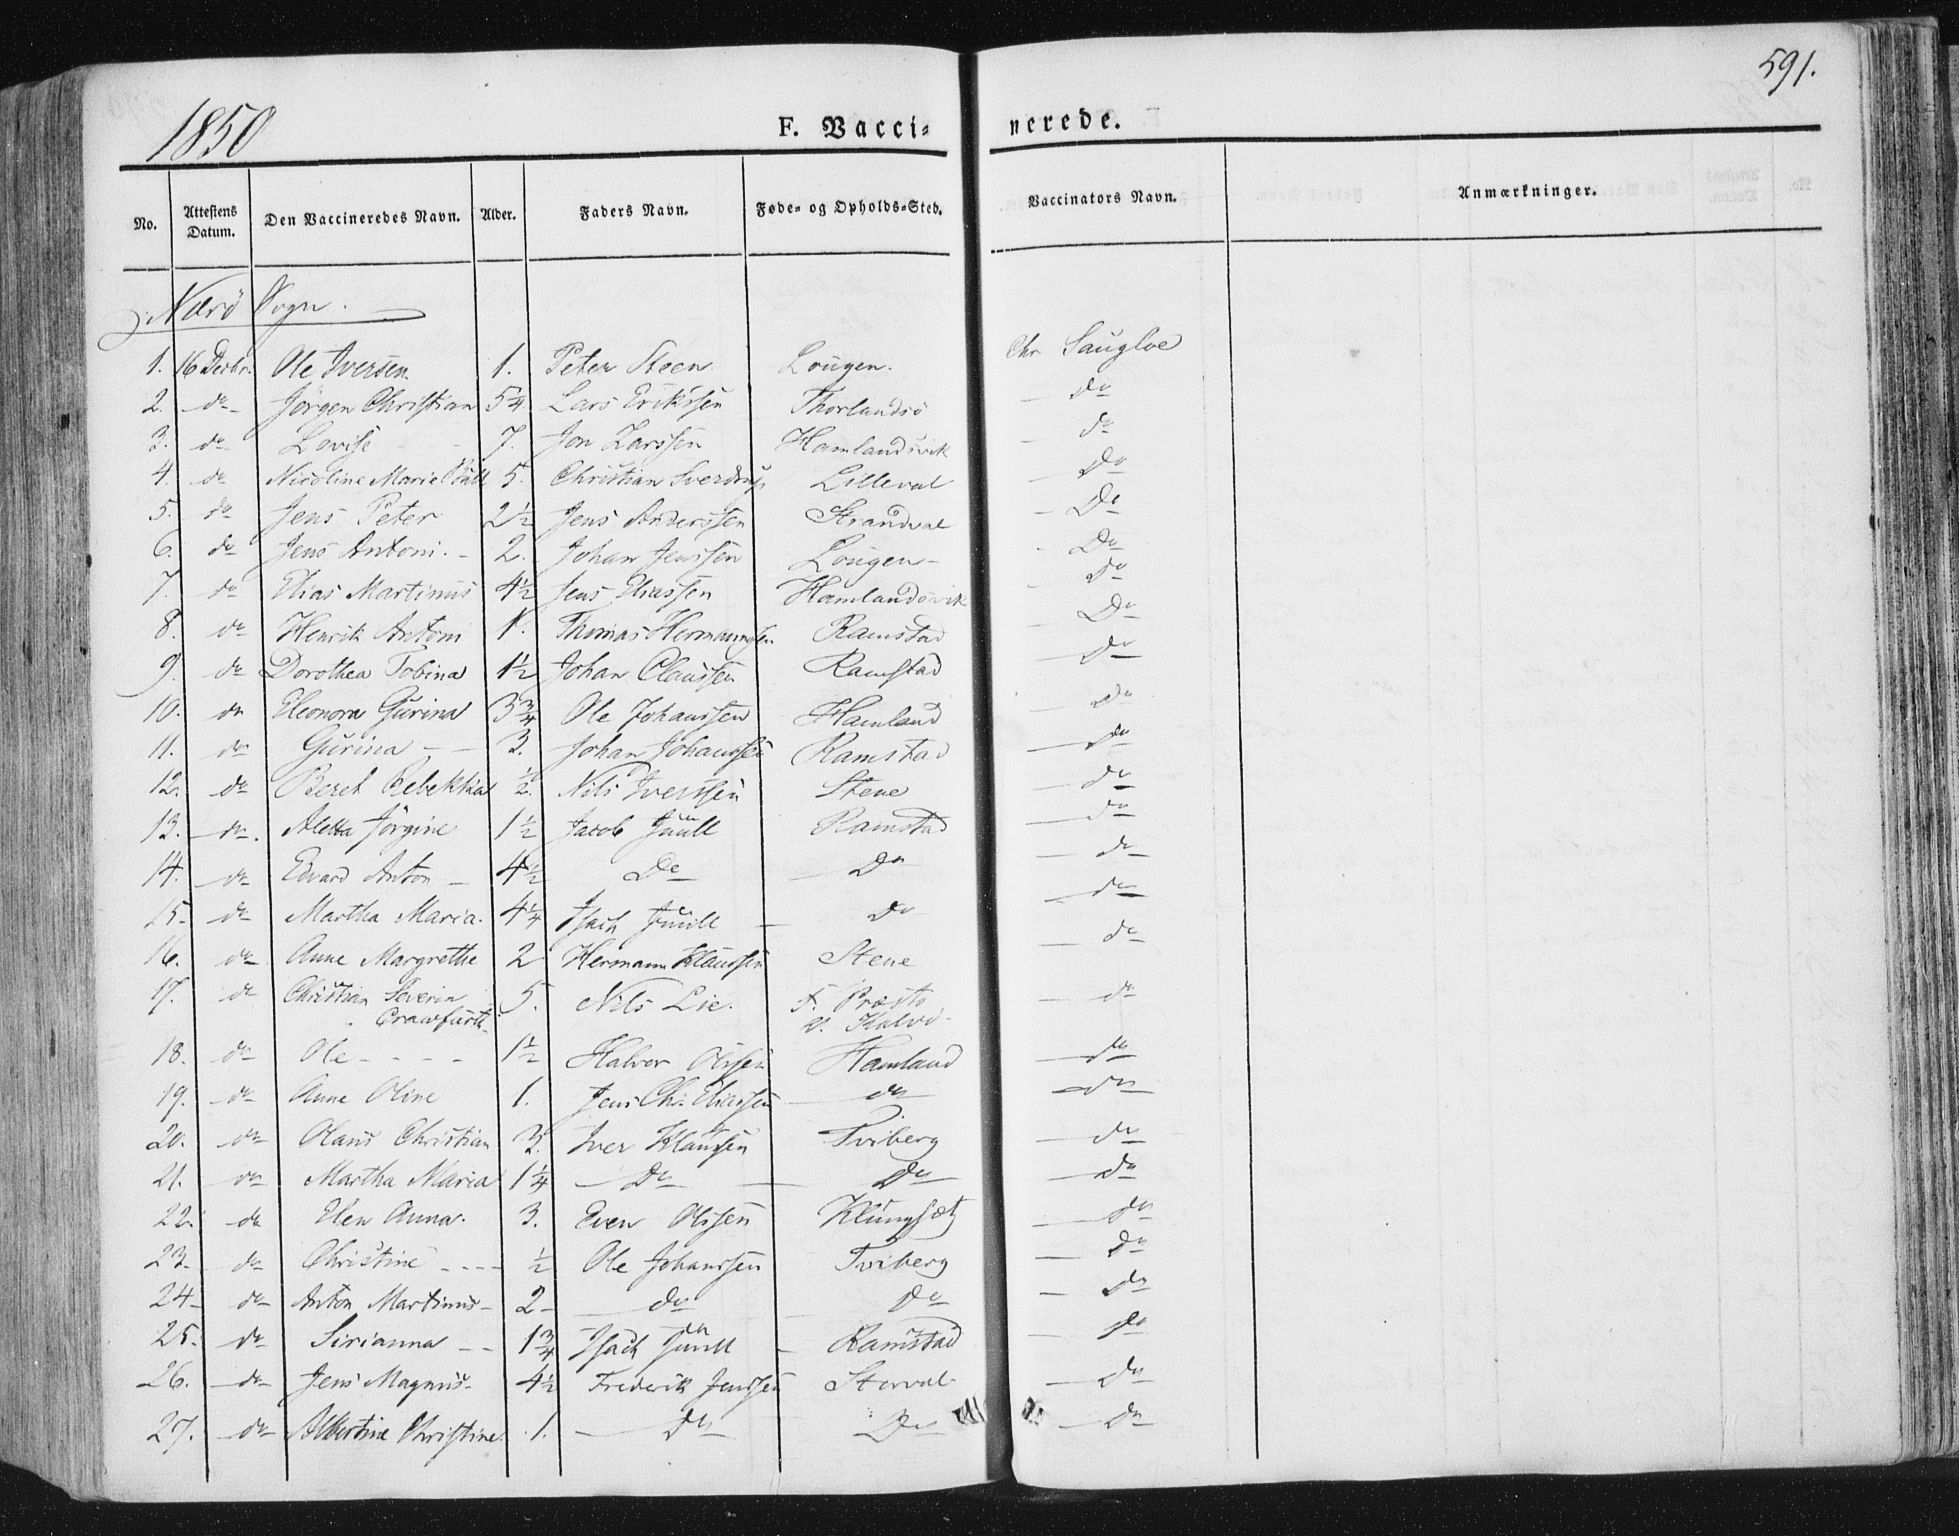 591.
1850 F. Vacci= nerede.
No. Attestens Datum. Den Vaccineredes Navn. Alder. Faders Navn. Føde- og Opholds-Sted. Vaccinators Navn. Anmærkninger.
Nærö Sogn.
1. 16 Decbr. Ole Iversen. 1. Peter Steen Lougen. Chr Saugloe
2. do Jörgen Christian 5/4 Lars Erikssen Thorlandsö do
3. do Lovise 7. Jon Larssen Hamlandsvik do
4. do Nicoline Marie 5. Christian Sverdrup Lilleval do
5. do Jens Peter 2½ Jens Anderssen Strandval Do
6. do Jens Antoni. 2. Johan Jenssen Lougen Do
7. do Elias Martinus 4½ Jens Eliassen Hamlandsvik do
8. do Henrik Antoni 1. Thomas Hermannssen Ramstad Do
9. do Dorothea Tobina 1½ Johan Claussen Ramstad Do
10. do Eleonora Gurina 3¾ Ole Johanssen Hamland do
11. do Gurina 3. Johan Johanssen Ramstad do
12. do Beret Rebekka ½ Nils Iverssen Stene do
13. do Aletta Jörgine 1½ Jacob Juull Ramstad do
14. do Edvard Anton 4½ Do Do do
15. do Martha Maria. 4¼ Isach Juull do do
16. do Anne Margrethe 2 Hermann Klaussen Stene do
17. do Christian Severin 5. Nils Lie. F. Præstö do
Crawfurth. V. Kalvö
18. do Ole 1½ Halvor Olssen Hamland do
19. do Anne Oline 1. Jens Chr. Eliassen do do
20. do Olaus Christian 3. Iver Klaussen Tviberg do
21. do Martha Maria 1¼ Do Do do
22. do Elen Anna. 3. Even Olssen Klungsæt do
23. do Christine ½ Ole Johanssen Tviberg Do
24. do Anton Martinus 2 do Do do
25. do Sirianna 1¾ Isach Juull Ramstad do
26. do Jens Magnus 4½ Frederik Jenssen Storval do
27. do Albertine Christine. 1. Do Do do